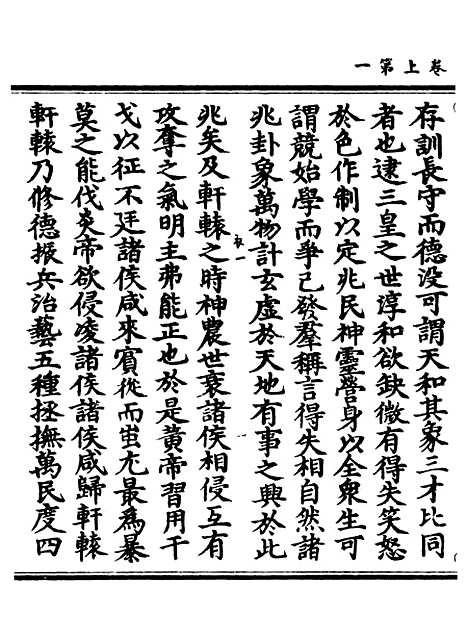 卷上第一
存訓長守而德没可謂天和其象三才比同
者也逮三皇之世淳和欲缺微有得失笑怒
於色作制以定兆民神靈營身以全衆生可
謂競始學而爭己發羣稱言得失相自然諸
兆卦象萬物計玄虚於天地有事之興於此
兆矣及軒轅之時神農世衰諸侯相侵互有
攻奪之氣明主弗能正也於是黄帝習用干
戈以征不廷諸侯咸來賓從而蚩尤最爲暴
莫之能伐炎帝欲侵凌諸侯諸侯咸歸軒轅
軒轅乃修德振兵治藝五種拯撫萬民度四